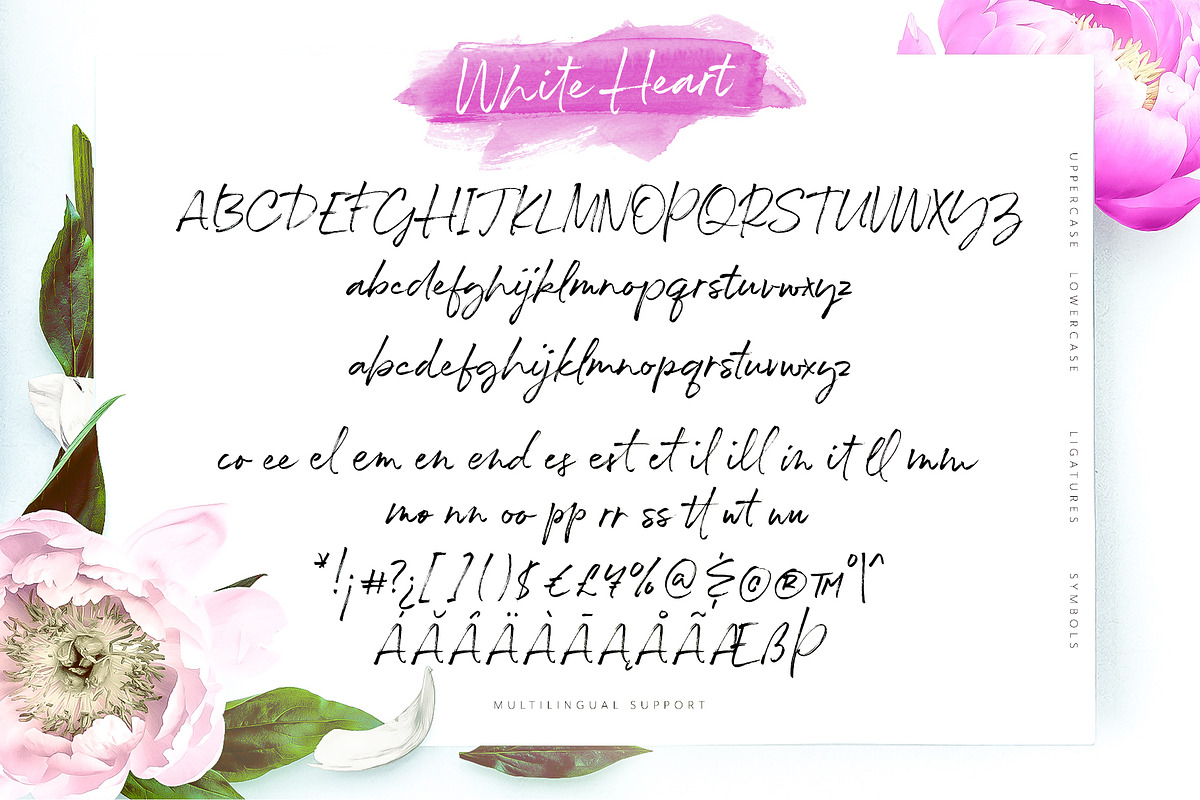 White Heart
ABCDEFGHIJKLMNOPQRSTUVWXYZ
abcdefghijklmnopqrstuvwxyz
abcdefghijklmnopqrstuvwxyz
co ee el em en end es est et il ill in it ll mm
mo nn oo pp rr ss tt ut uu
*!¡#?¿[]()$€£¥%@&©®™°|^
ÁĂÂÄÀĀĄÅÃÆßÞ
MULTILINGUAL SUPPORT
UPPERCASE
LOWERCASE
LIGATURES
SYMBOLS